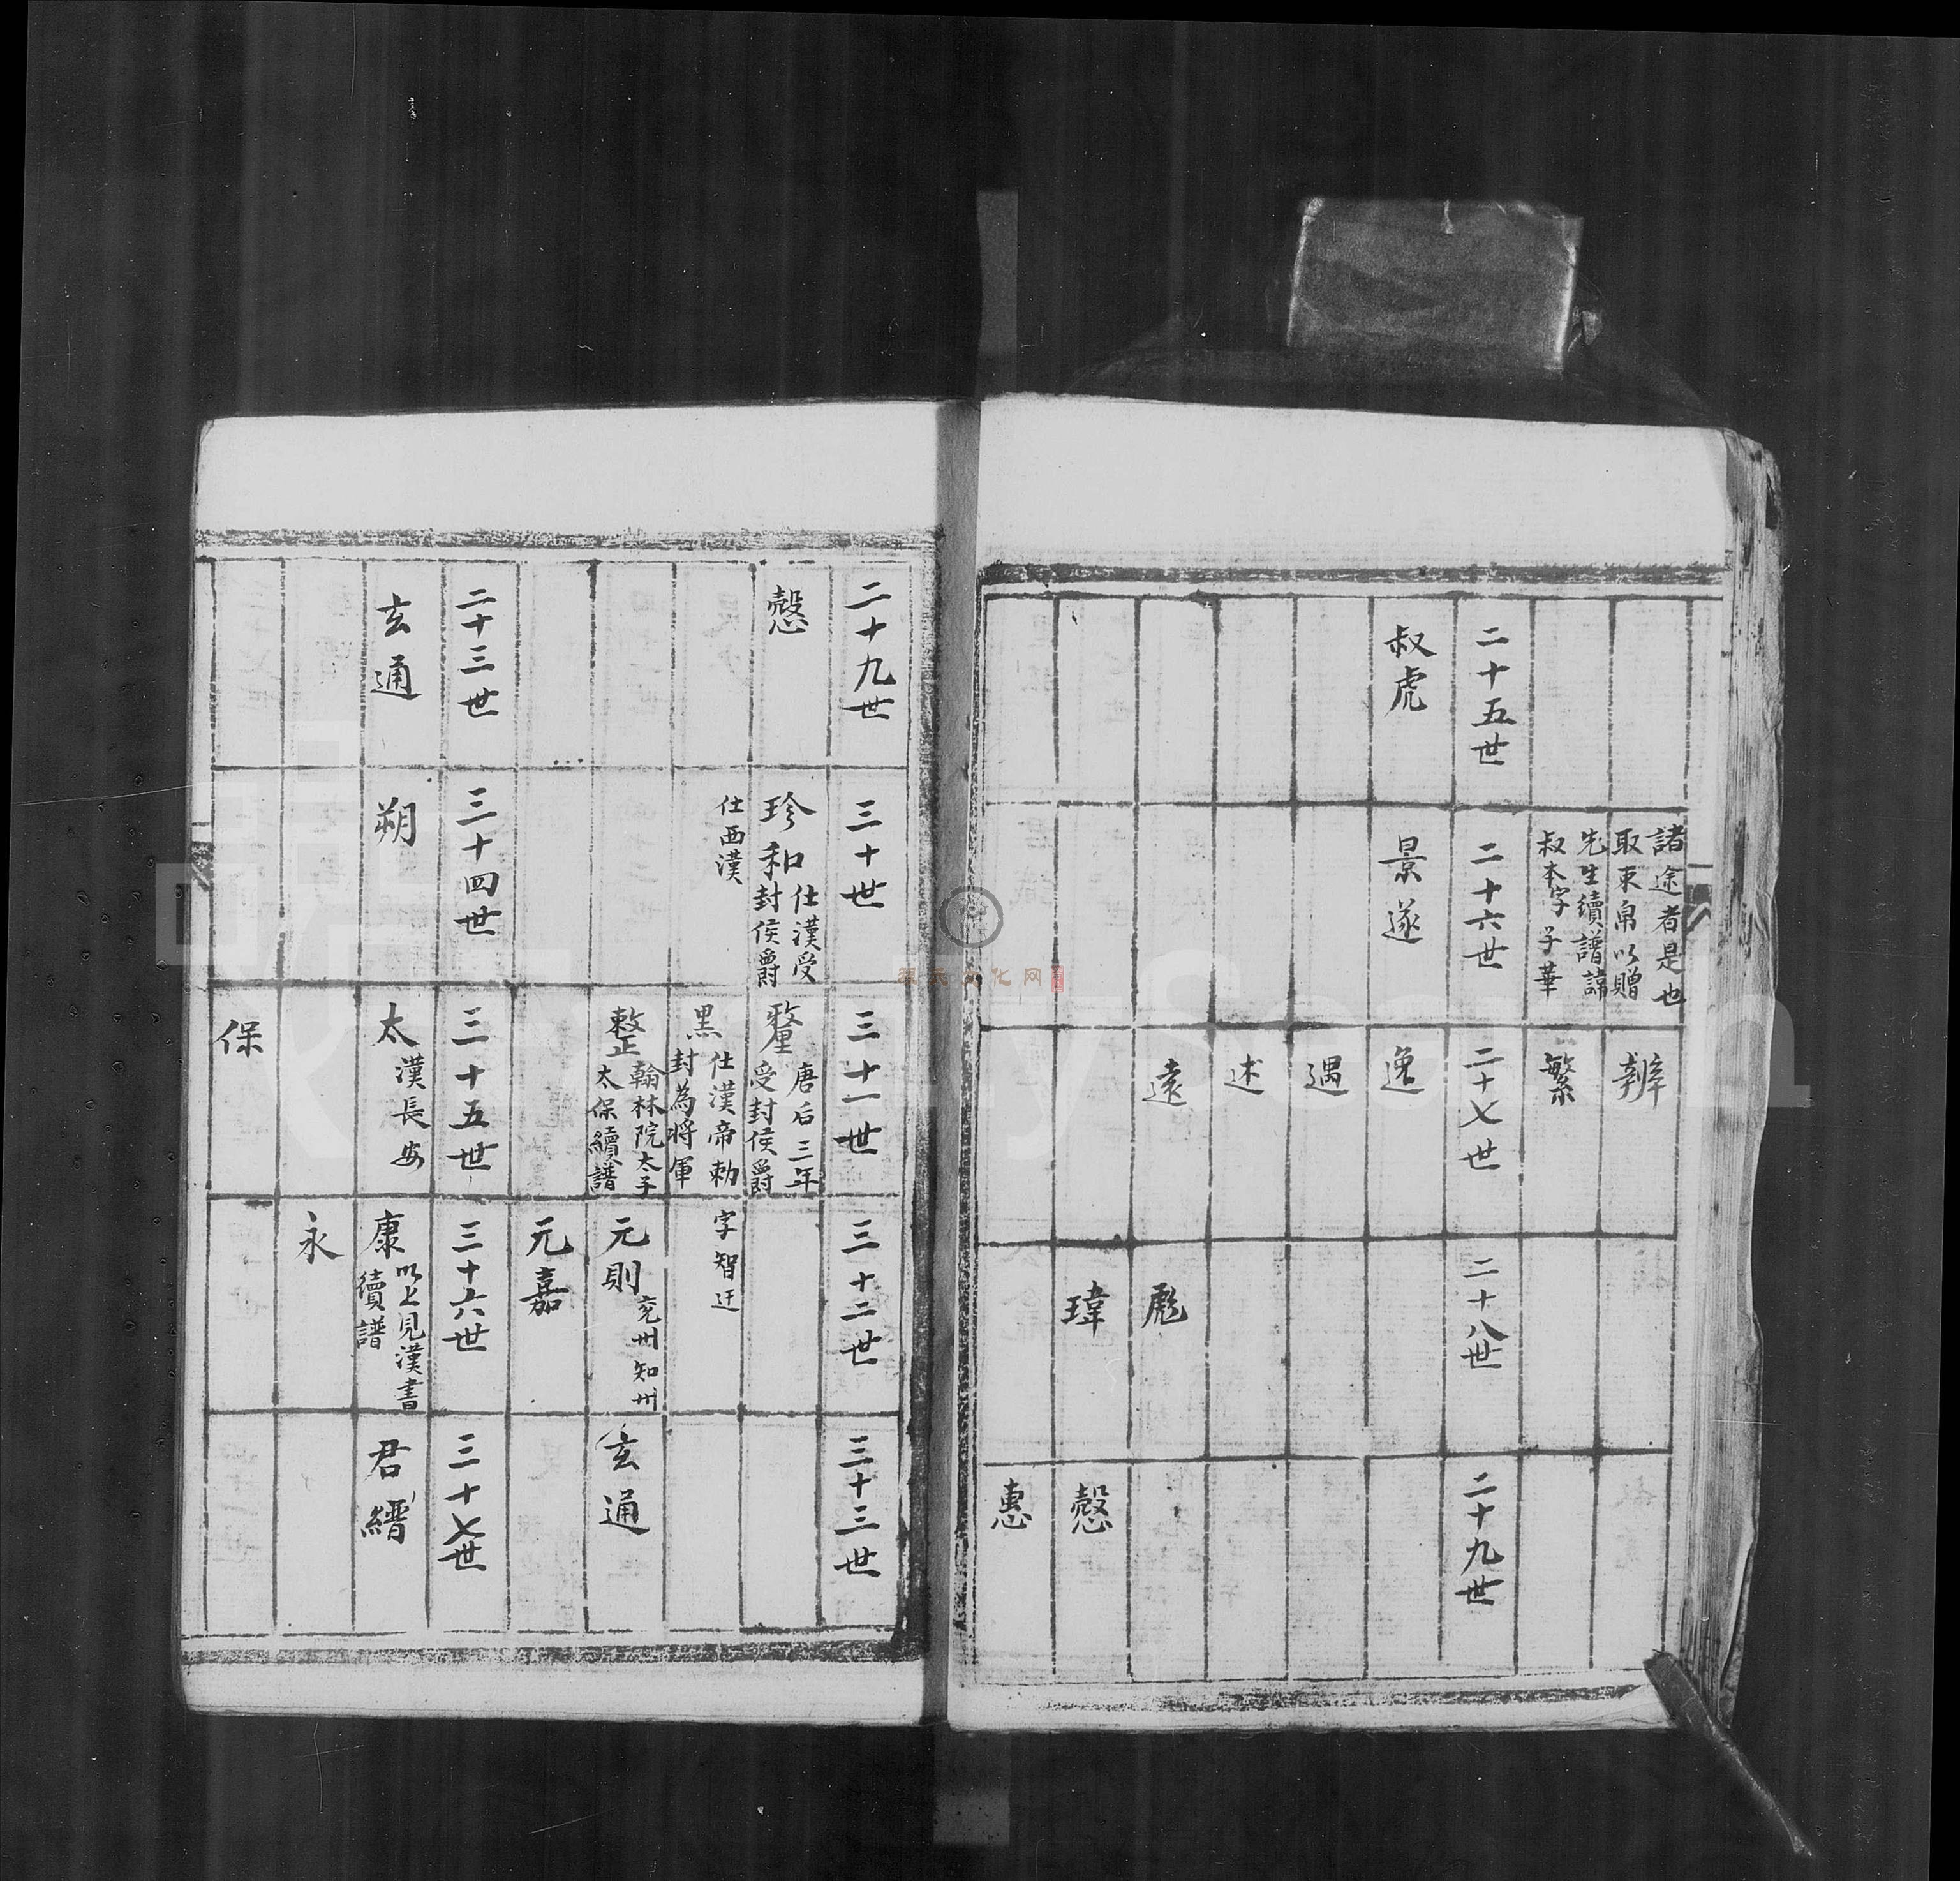 諸途者是也
取束帛以贈
先生續譜諱
叔本字子華
辨
繁
二十五世
二十六世
二十七世
二十八世
二十九世
叔虎
景遂
逸
遇
述
遠
彪
瑋
慤
惠
二十九世
三十世
三十一世
三十二世
三十三世
慤
珍和
仕漢受
封侯爵
釐
唐后三年
受封侯爵
仕西漢
黑
仕漢帝勅
封為将軍
字智迂
整
翰林院太子
太保續譜
元則
兖州知州
玄通
元嘉
二十三世
三十四世
三十五世
三十六世
三十七世
玄通
朔
太
漢長安
康
以上見漢書
續譜
君縉
永
保